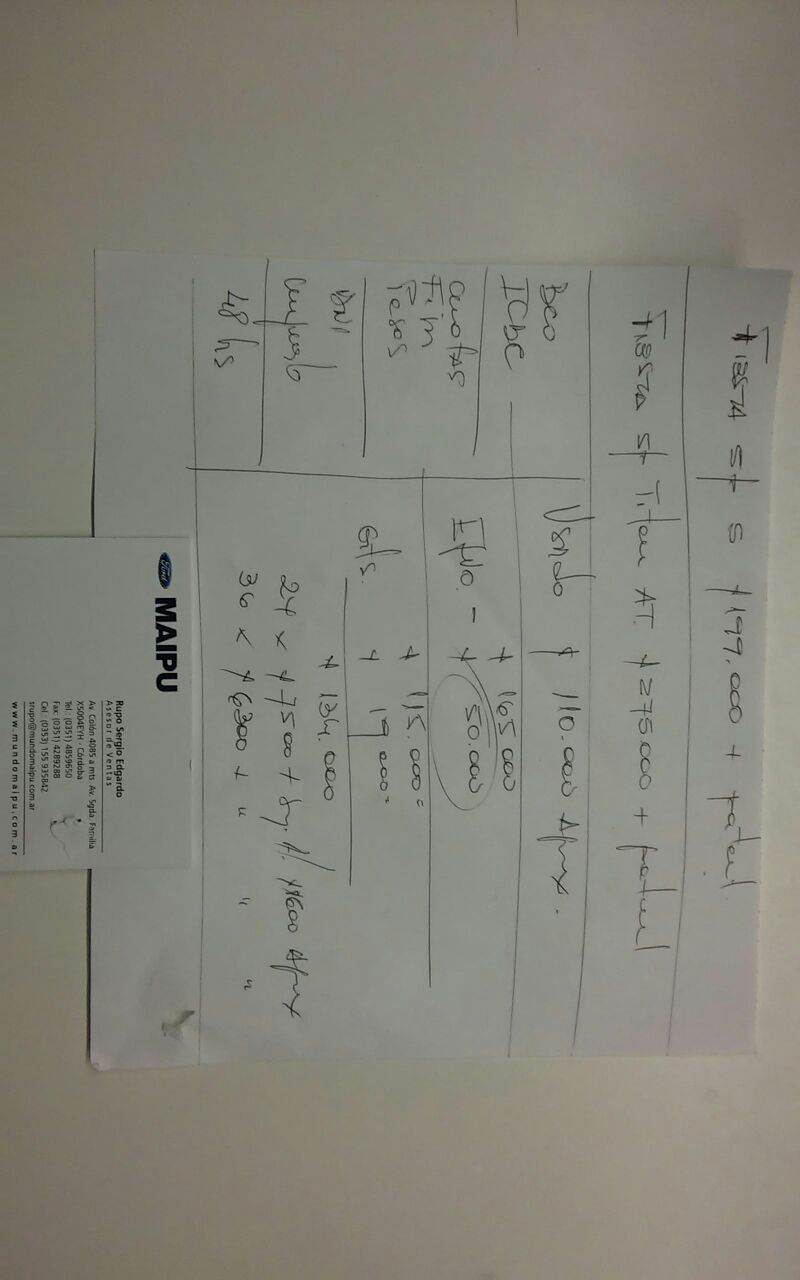 Fiesta 5/p S $ 199.000 + patent
Fiesta 5/p Titan AT $ 275000 + patent
Bco
ICBC
Cuotas
Fija
Pesos
DNI
Impuesto
48 hs
Usado $ 110.000 Aprox.
$ 165000
Eftvo. - $ 50.000
$ 115.000
Gts. $ 19000
$ 134.000
24 x $ 7500 + $ 1600 Aprox
36 x $ 6300 + " " "
Ford MAIPU
Rupo Sergio Edgardo
Asesor de Ventas
Av. Colón 4085 a mts Av. Sgda. Familia
X5004EYH - Córdoba
Tel: (0351) 4859650
Fax: (0351) 4289288
Cel.: (0353) 155 935842
srupo@mundomaipu.com.ar
www.mundomaipu.com.ar